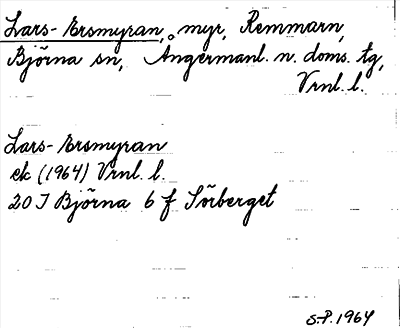 Lars-Ersmyran, myr, Remmarn,
Björna sn, Ångermanl. n. doms. tg,
Vrnl. l.
Lars-Ersmyran
ek (1964) Vrnl. l.
20 I Björna 6 f Sörberget
S.P. 1964